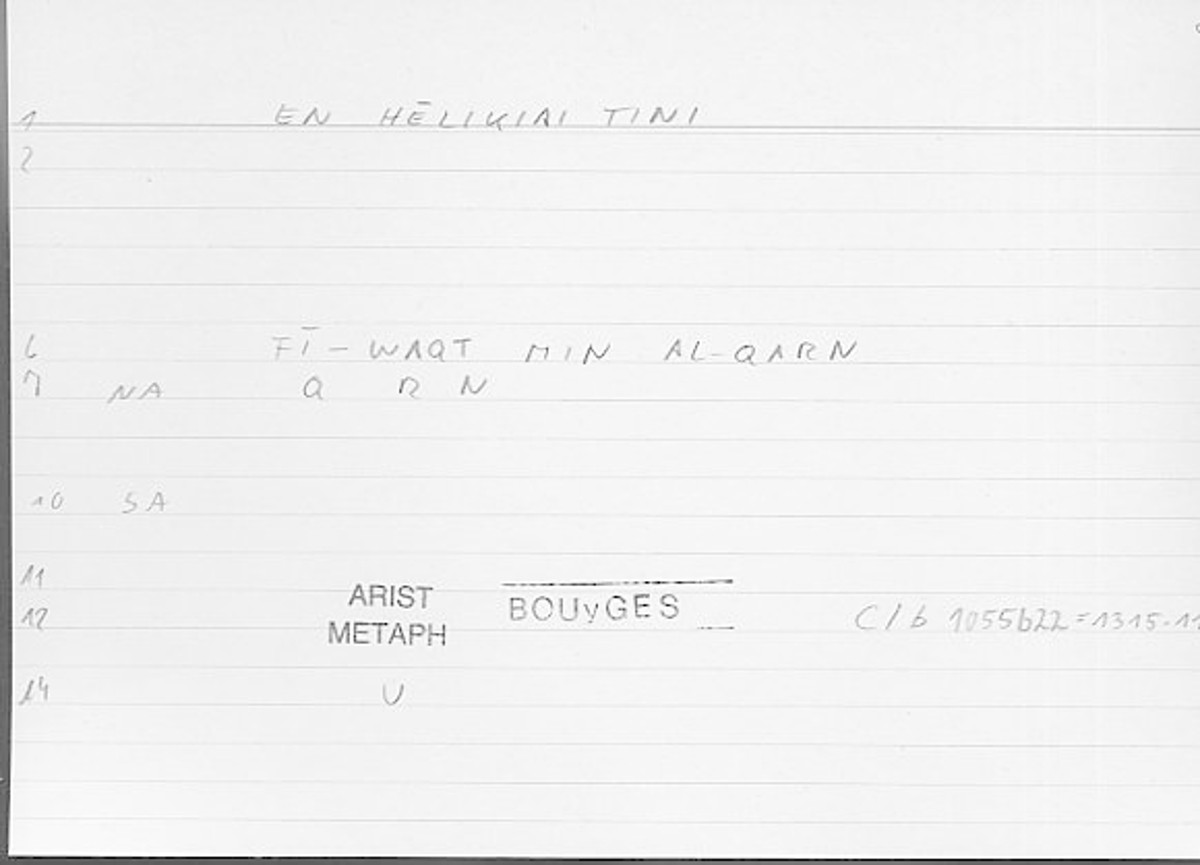 1 EN HĒLIKIAI TINI
2
6 FĪ-WAQT MIN AL-QARN
7 NA Q R N
10 SA
11 ARIST
12 METAPH BOUyGES C/b 1055b22=1315-11
14 U